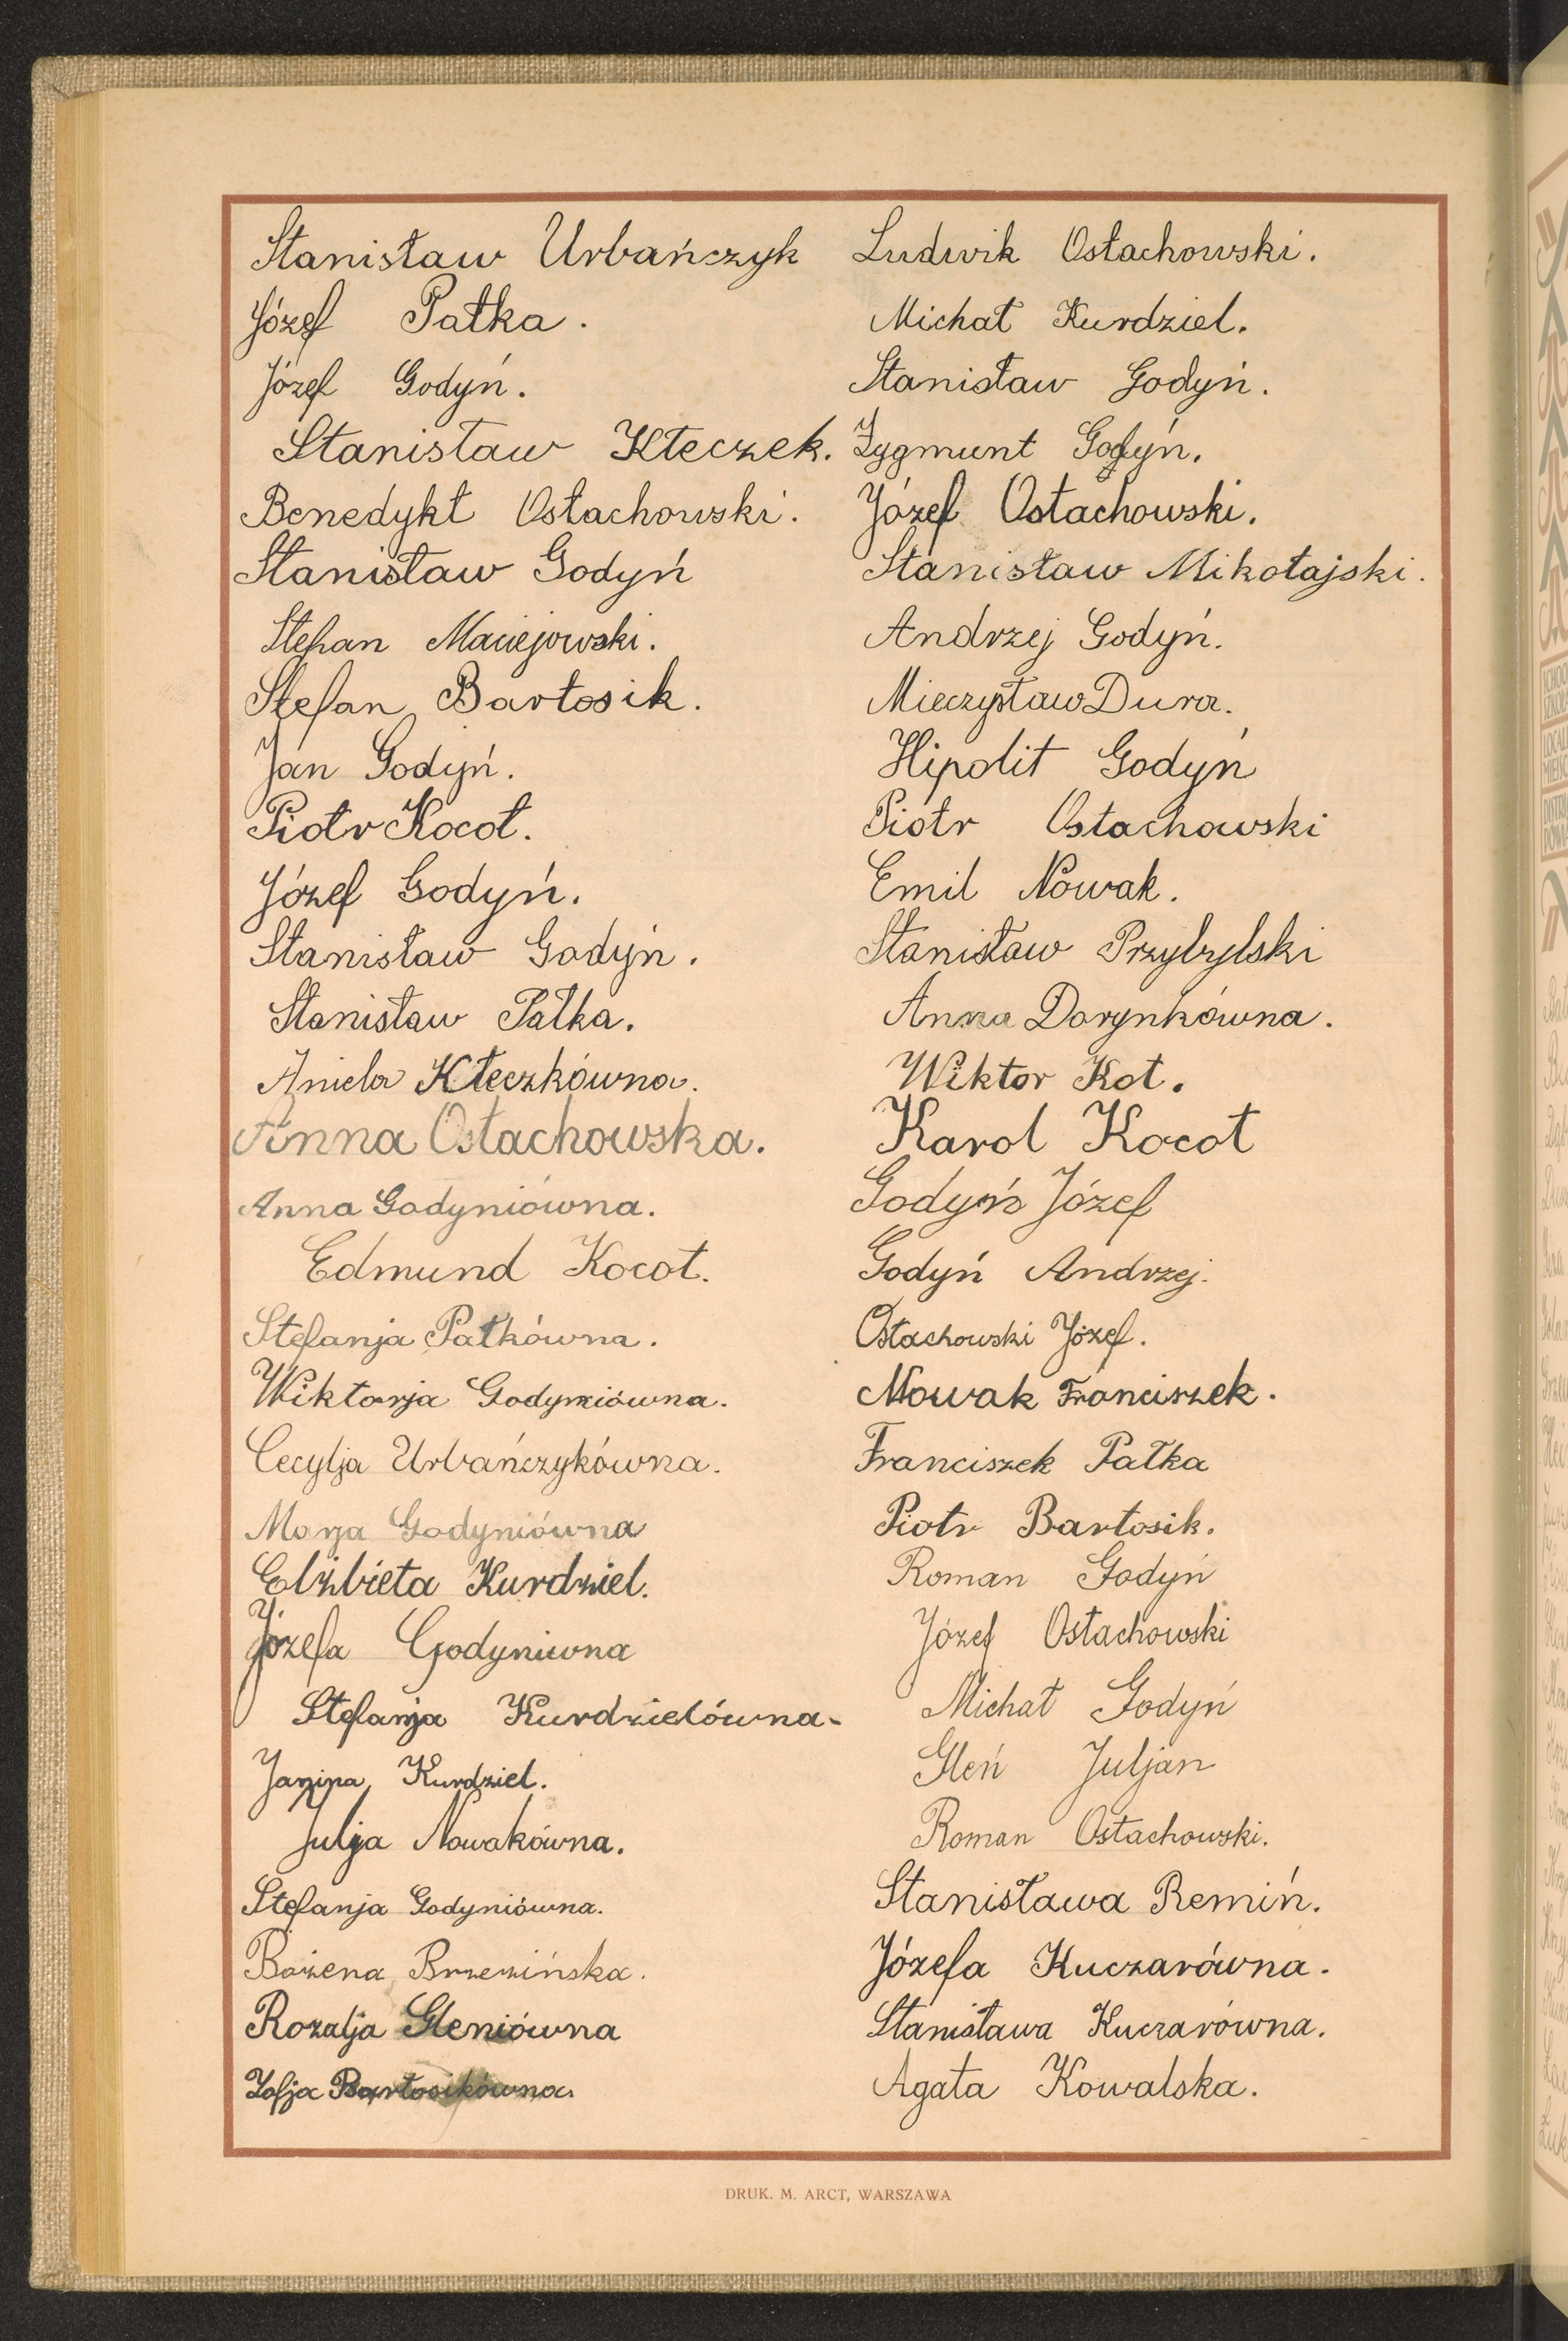 Stanisław Urbańczyk
Józef Pałka.
Józef Godyń.
Stanisław Kłeczek.
Benedykt Ostachowski.
Stanisław Godyń
Stefan Maciejowski.
Stefan Bartosik.
Jan Godyń.
Piotr Kocot.
Józef Godyń.
Stanisław Godyń.
Stanisław Pałka.
Aniela Kłeczkówna.
Anna Ostachowska.
Anna Godyniówna.
Edmund Kocot.
Stefanja Pałkówna.
Wiktorja Godyniówna.
Cecylja Urbańczykówna.
Marja Godyniówna
Elżbieta Kurdziel.
Józefa Godyniwna
Stefanja Kurdzielówna.
Janina Kurdziel.
Julja Nowakówna.
Stefanja Godyniówna.
Bożena Brzezińska.
Rozalja Gleniówna
Zofja Bartosikówna.
Ludwik Ostachowski.
Michał Kurdziel.
Stanisław Godyń.
Zygmunt Godyń.
Józef Ostachowski.
Stanisław Mikołajski.
Andrzej Godyń.
Mieczysław Dura.
Hipolit Godyń
Piotr Ostachowski
Emil Nowak.
Stanisław Przybylski
Anna Dorynkówna.
Wiktor Kot.
Karol Kocot
Godyń Józef
Godyń Andrzej.
Ostachowski Józef.
Nowak Franciszek.
Franciszek Pałka
Piotr Bartosik.
Roman Godyń
Józef Ostachowski
Michał Godyń
Gleń Juljan
Roman Ostachowski.
Stanisława Remiń.
Józefa Kuczarówna.
Stanisława Kuczarówna.
Agata Kowalska.
DRUK. M. ARCT, WARSZAWA